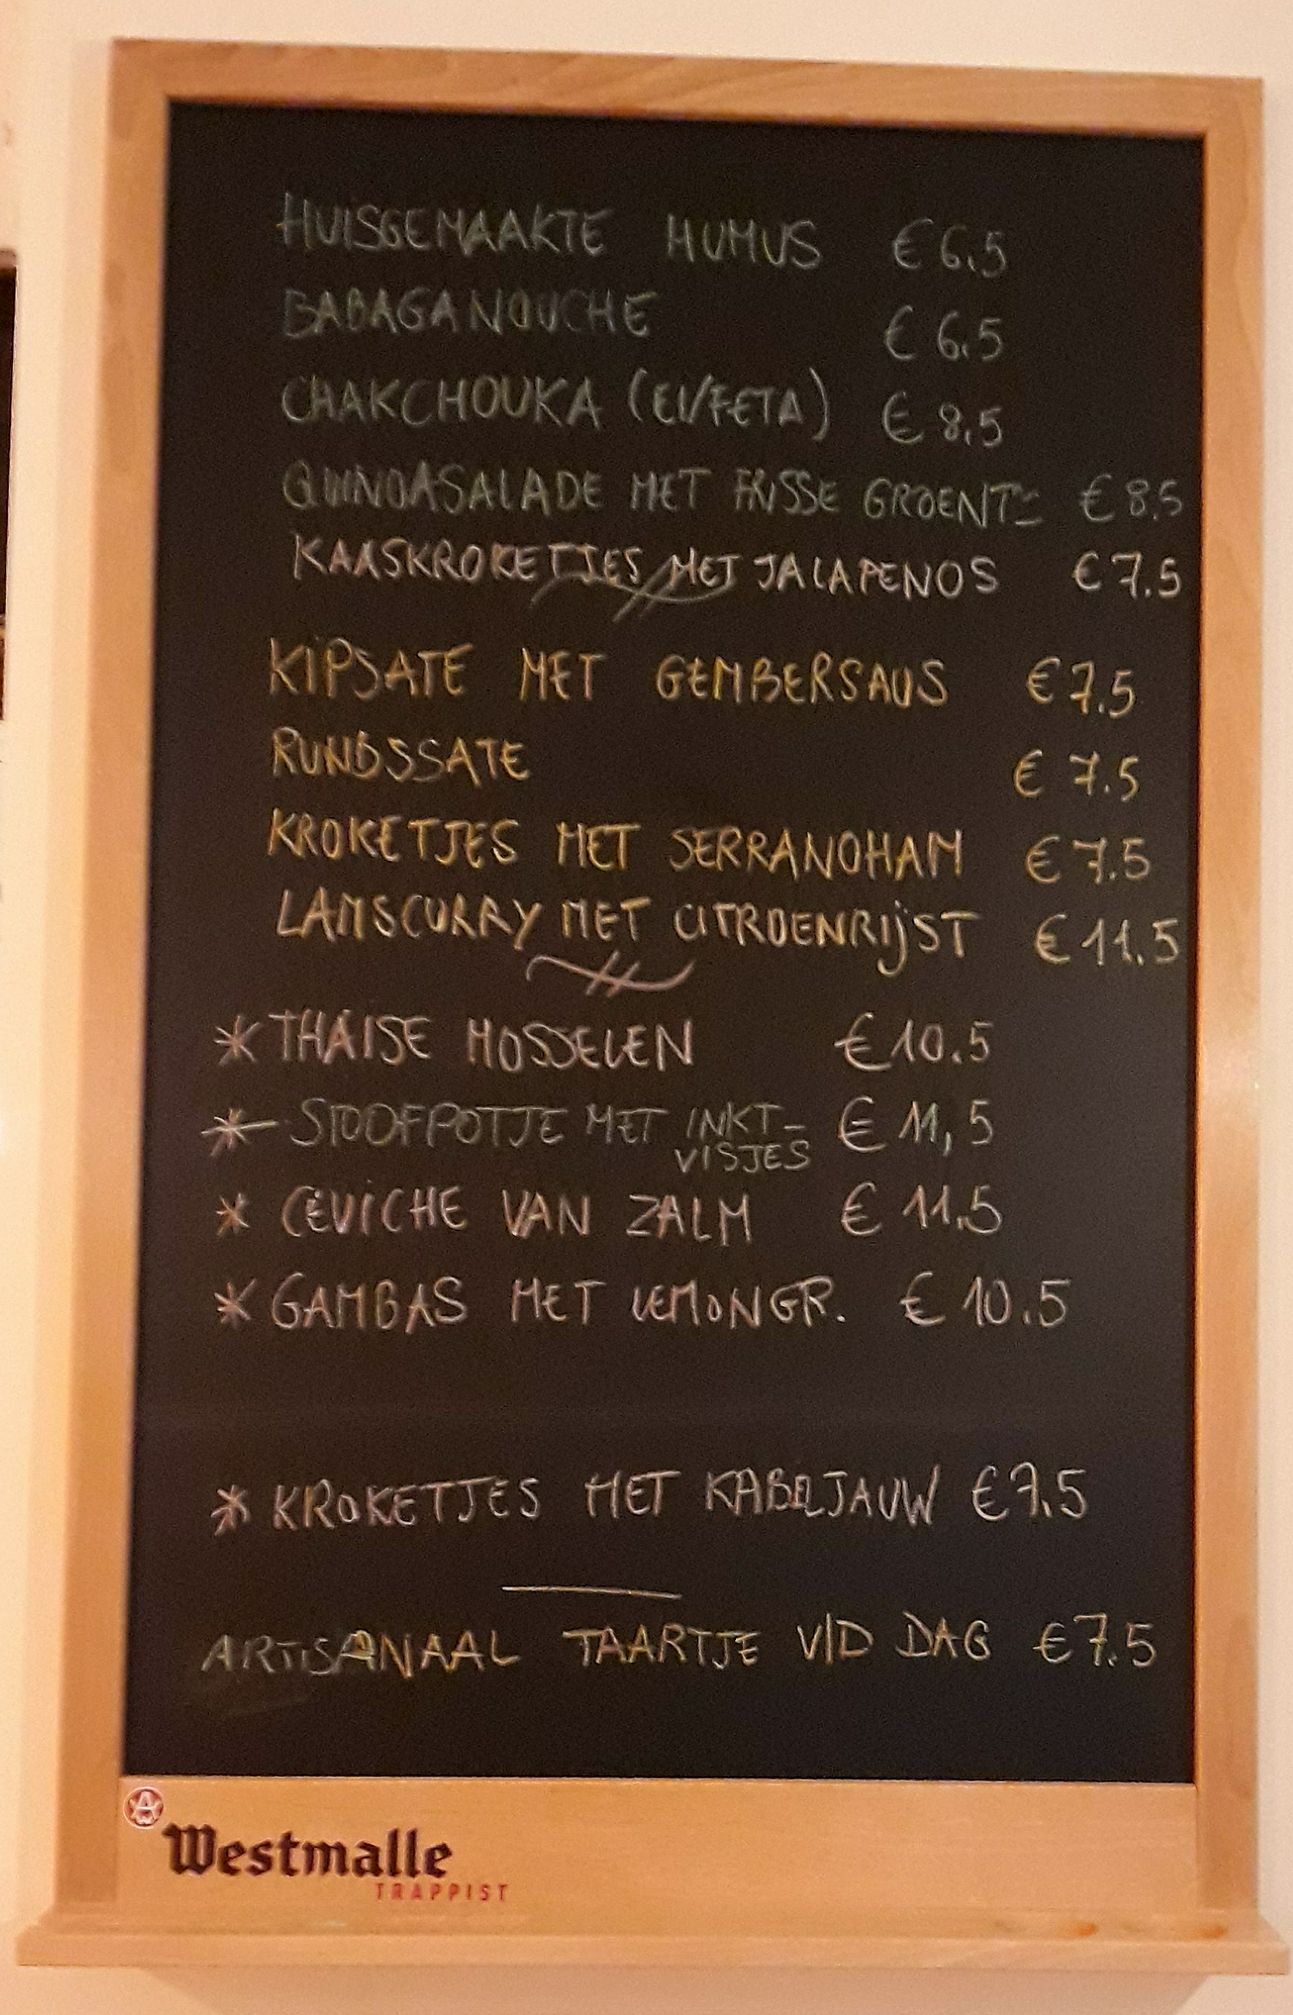 HUISGEMAAKTE HUMUS € 6.5
BABAGANOUCHE € 6.5
CHAKCHOUKA (EI/FETA) € 8.5
QUINOASALADE MET FRISSE GROENT- € 8.5
KAASKROKETJES MET JALAPENOS € 7.5
KIPSATE MET GEMBERSAUS € 7.5
RUNDSSATE € 7.5
KROKETJES MET SERRANOHAM € 7.5
LAMSCURRY MET CITROENRIJST € 11.5
* THAISE MOSSELEN € 10.5
* STOOFPOTJE MET INKT- € 11,5
VISJES
* CEVICHE VAN ZALM € 11.5
* GAMBAS MET LEMONGR. € 10.5
* KROKETJES MET KABELJAUW € 7.5
ARTISANAAL TAARTJE V/D DAG € 7.5
Westmalle
TRAPPIST